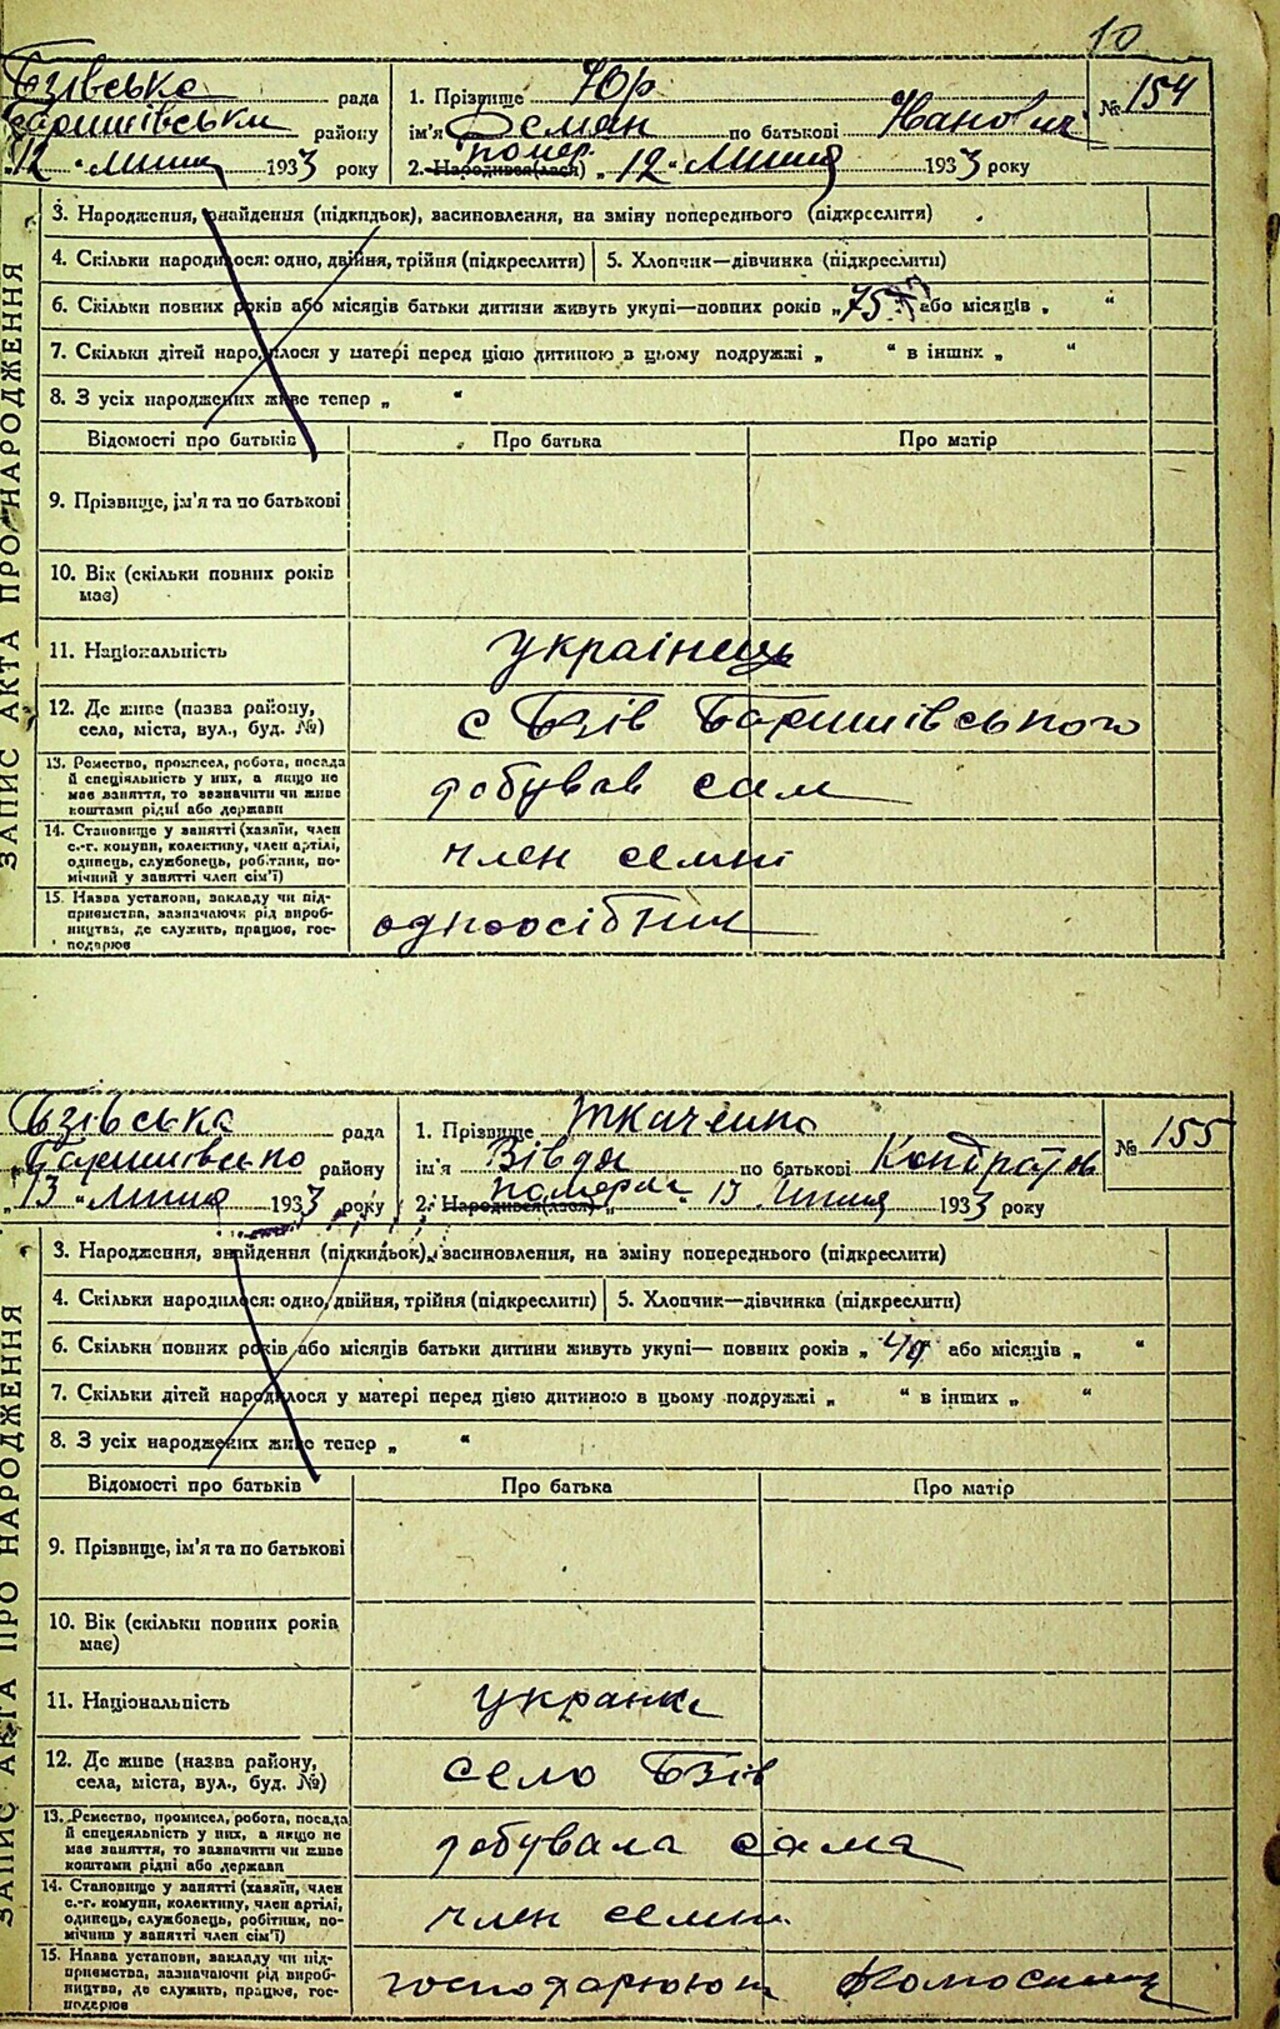 10
Бзівська рада
Баришівськи району
„12“ липця 1933 року
1. Прізвище Юр
ім'я Деман по батькові Иванович
помер.
2. Народився(лася) „12“ липця 1933 року
№ 154
ЗАПИС АКТА ПРО НАРОДЖЕННЯ
3. Народження, знайдення (підкидьок), засиновлення, на зміну попереднього (підкреслити)
4. Скільки народилося: одно, двійня, трійня (підкреслити) 5. Хлопчик—дівчинка (підкреслити)
6. Скільки повних років або місяців батьки дитини живуть укупі—повних років „75 або місяців „ “
7. Скільки дітей народилося у матері перед цією дитиною в цьому подружжі „ “ в інших „ “
8. З усіх народжених живе тепер „ “
Відомості про батьків Про батька Про матір
9. Прізвище, ім'я та по батькові
10. Вік (скільки повних років
має)
11. Національність українець
12. Де живе (назва району,
села, міста, вул., буд. №) с Бзів Баришівського
13. Ремество, промисел, робота, посада
й спеціяльність у них, а якщо не
має заняття, то зазначити чи живе
коштами рідні або держави
робував сам
14. Становище у занятті (хазяїн, член
с.-г. комуни, колективу, член артілі,
одинець, службовець, робітник, по-
мічний у занятті член сім'ї)
член семиі
15. Назва установи, закладу чи під-
приємства, зазначаючи рід вироб-
ництва, де служить, працює, гос-
подарює
одноосібник
Бзівська рада
Баришівсько району
„13“ липця 1933 року
1. Прізвище Ткаченко
ім'я Вівдя по батькові Кондратов
померла
2. Народився(лася) „13 липця 1933 року
№ 155
ЗАПИС АКТА ПРО НАРОДЖЕННЯ
3. Народження, знайдення (підкидьок), засиновлення, на зміну попереднього (підкреслити)
4. Скільки народилося: одно, двійня, трійня (підкреслити) 5. Хлопчик—дівчинка (підкреслити)
6. Скільки повних років або місяців батьки дитини живуть укупі— повних років „ або місяців „ “
7. Скільки дітей народилося у матері перед цією дитиною в цьому подружжі „ “ в інших „ “
8. З усіх народжених живе тепер „ “
Відомості про батьків Про батька Про матір
9. Прізвище, ім'я та по батькові
10. Вік (скільки повних років
має)
11. Національність украинка
12. Де живе (назва району,
села, міста, вул., буд. №) село Бзів
13. Ремество, промисел, робота, посада
й спецеяльність у них, а якщо не
має заняття, то зазначити чи живе
коштами рідні або держави
робувала сама
14. Становище у занятті (хазяїн, член
с.-г. комуни, колективу, член артілі,
одинець, службовець, робітник, по-
мічний у занятті член сім'ї)
член семи
15. Назва установи, закладу чи під-
приємства, зазначаючи рід вироб-
ництва, де служить, працює, гос-
подарює